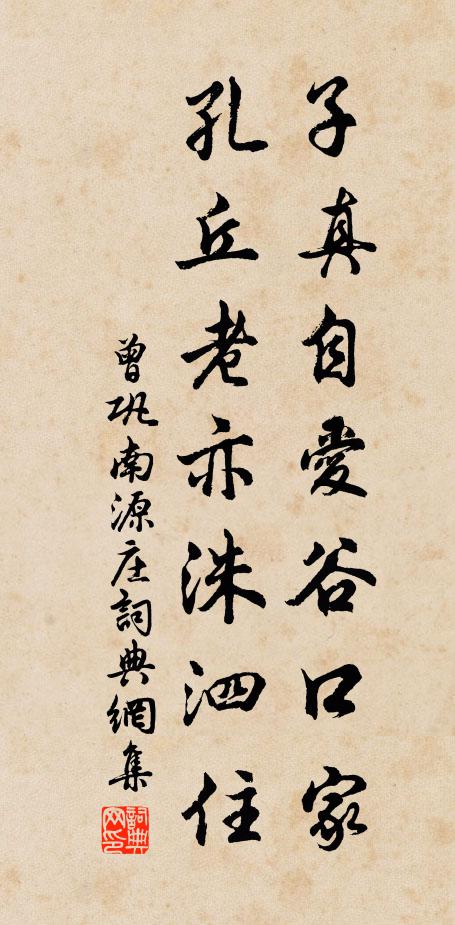 子真自愛谷口家
孔丘老亦洙泗住
曾巩南源庄詞典網集
詞典网印